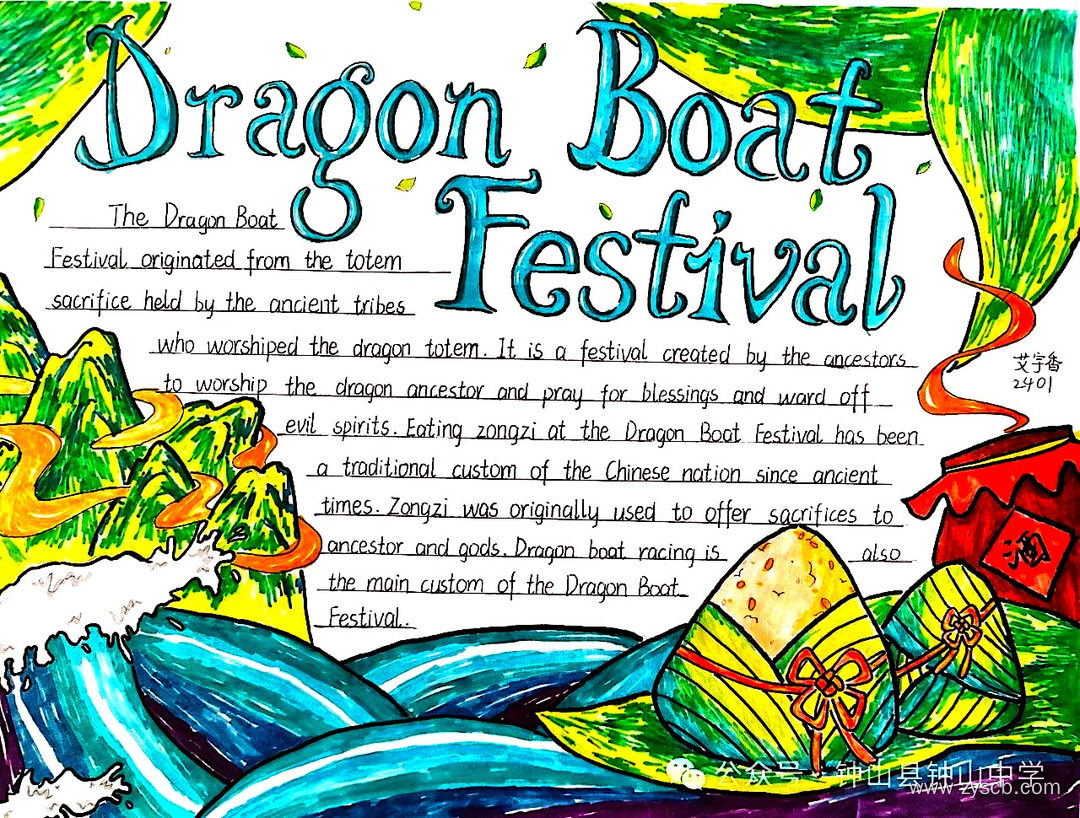 Dragon Boat
Festival
The Dragon Boat
Festival originated from the totem
sacrifice held by the ancient tribes
who worshiped the dragon totem. It is a festival created by the ancestors
to worship the dragon ancestor and pray for blessings and ward off
evil spirits. Eating zongzi at the Dragon Boat Festival has been
a traditional custom of the Chinese nation since ancient
times. Zongzi was originally used to offer sacrifices to
ancestor and gods. Dragon boat racing is also
the main custom of the Dragon Boat
Festival.
艾宇香
2401
酒
公众号·钟山县钟山中学
www.zyscb.com